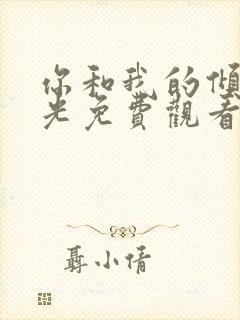 你和我的傾
光免費觀看
聶小倩